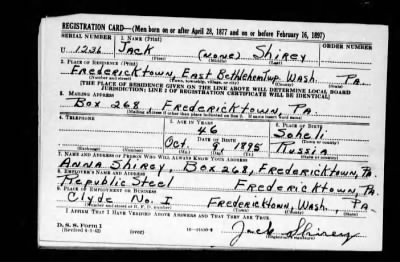 REGISTRATION CARD—(Men born on or after April 28, 1877 and on or before February 16, 1897)
SERIAL NUMBER 1. NAME (Print) ORDER NUMBER
U 1236 Jack (none) Shirey
(First) (Middle) (Last)
2. PLACE OF RESIDENCE (Print)
Fredericktown, East Bethlehem Twp. Wash. Pa.
(Number and street) (Town, township, village, or city) (County) (State)
[THE PLACE OF RESIDENCE GIVEN ON THE LINE ABOVE WILL DETERMINE LOCAL BOARD
JURISDICTION; LINE 2 OF REGISTRATION CERTIFICATE WILL BE IDENTICAL]
3. MAILING ADDRESS
Box 268, Fredericktown, Pa.
[Mailing address if other than place indicated on line 2. If same insert word same]
4. TELEPHONE 5. AGE IN YEARS 6. PLACE OF BIRTH
46 Soheli
DATE OF BIRTH (Town or county)
Oct. 9 1895 Russia
(Exchange) (Number) (Mo.) (Day) (Yr.) (State or country)
7. NAME AND ADDRESS OF PERSON WHO WILL ALWAYS KNOW YOUR ADDRESS
Anna Shirey, Box 268, Fredericktown, Pa.
8. EMPLOYER'S NAME AND ADDRESS
Republic Steel Fredericktown, Pa.
9. PLACE OF EMPLOYMENT OR BUSINESS
Clyde No. I Fredericktown, Wash., Pa.
(Number and street or R. F. D. number) (Town) (County) (State)
I AFFIRM THAT I HAVE VERIFIED ABOVE ANSWERS AND THAT THEY ARE TRUE.
D. S. S. Form 1
(Revised 4-1-42) (over) Jack Shirey
(Registrant's signature)